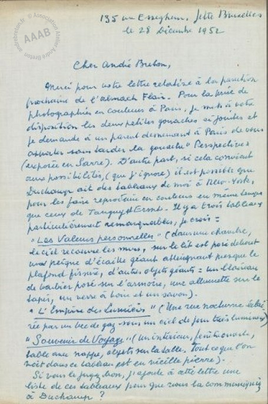 135 rue Esseghem, Jette Bruxelles
le 28 Décembre 1952
AAAB
Cher André Breton,
Merci pour votre lettre relative à la parution
prochaine de l'almach Flair. Pour la prise de
photographies en couleurs à Paris, je mets à votre
disposition les deux petites gouaches ci jointes et
je demande à un parent demeurant à Paris de vous
apporter sans tarder la gouache "Perspectives
(exposée en Sarre). D'autre part, si cela convient
aux possibilités, (que j'ignore) il est possible que
Duchamp ait des tableaux de moi à New-York,
pour les faire reproduire en couleurs en même temps
que ceux de Tanguy et Ernst. Il y a trois tableaux
particulièrement remarquables, je crois :
"Les Valeurs personnelles" (dans une chambre,
le ciel recouvre les murs, sur le lit est posé debout
un peigne d'écaille géant atteignant presque le
plafond, d'autres objets géants = un blaireau
de barbier posé sur l'armoire, une allumette sur le
tapis, un verre à boire et un savon).
"L'Empire des lumières" (Une rue nocturne
éclairée par un bec de gaz sous un ciel de jour très lumineux)
"Souvenir de Voyage" (un intérieur,
table avec nappe, objets sur la table, tout ce que l'on
voit dans ce tableau est en vieille pierre).
Si vous le jugez bon, j'ajoute à cette lettre une
liste de ces tableaux pour que vous la communiquiez
à Duchamp ?